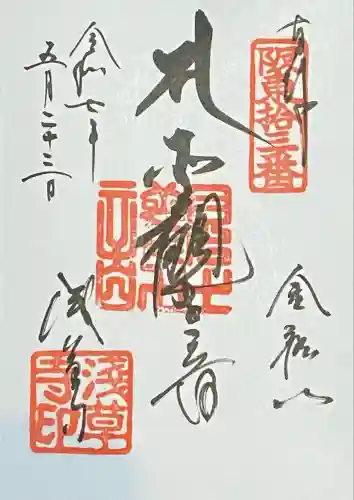 奉拝
阪東拾三番
金龍山
札所観世音
令和七年
五月二十二日
浅草寺
淺草寺印